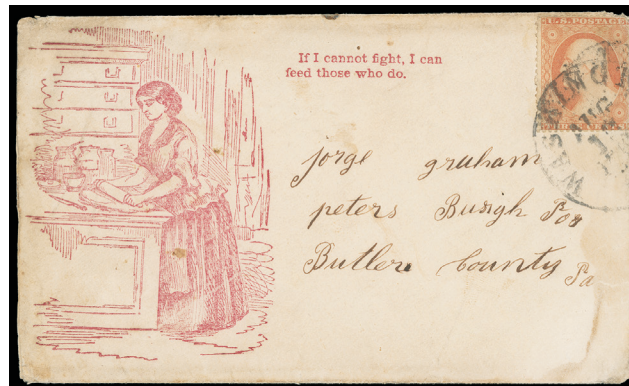 If I cannot fight, I can
feed those who do.
U.S. POSTAGE
jorge graham
peters Burigh Por
Butler county Pa